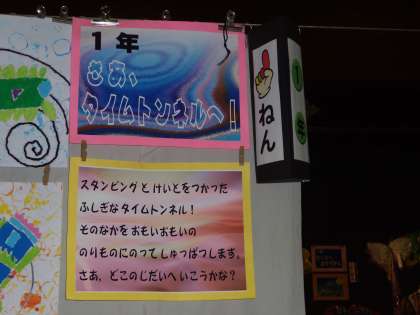 1年
さあ、
タイムトンネルへ!
スタンピングとけいとをつかった
ふしぎなタイムトンネル!
そのなかをおもいおもいの
のりものにのってしゅっぱつします。
さあ、どこのじだいへいこうかな?
ねん
1年